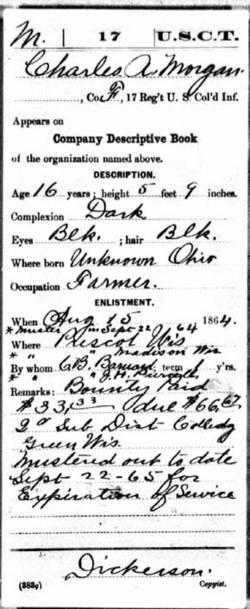 M. 17 U.S.C.T.
Charles A. Morgan
, Co. F, 17 Reg't U. S. Col'd Inf.
Appears on
Company Descriptive Book
of the organization named above.
DESCRIPTION.
Age 16 years; height 5 feet 9 inches.
Complexion Dark
Eyes Blk. ; hair Blk.
Where born Unknown Ohio
Occupation Farmer.
ENLISTMENT.
When Aug 15 1864.
* Muster in Sept 22/64
Where Prescot Wis
" " Madison Wis
By whom C.B. ; term 1 y'rs.
" " J.H.
Remarks: Bounty Paid
$33,33 due $66,67.
2d Sub Dist
Green Wis
Mustered out to date
Sept 22-65 for
Expiration of Service
Dickerson.
(383g) Copyist.